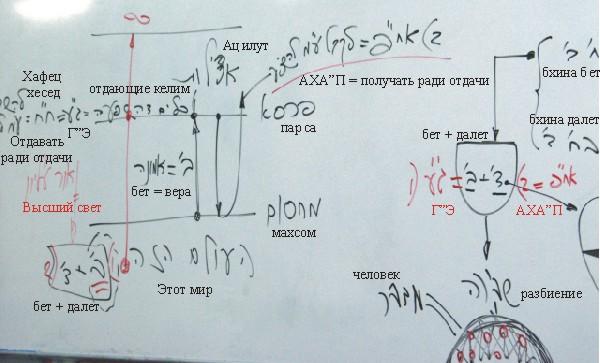 ∞
Ацилут
אצילות
2) אח"פ = לקבל ע"מ להשפיע
АХА”П = получать ради отдачи
Хафец
хесед
отдающие келим
פרסא
парса
Г”Э
Отдавать
ради отдачи
ב' = אמונה
бет = вера
אור עליון
Высший свет
מחסום
махсом
העולם הזה
Этот мир
ב' + ד'
бет + далет
בח' ב'
бхина бет
бхина далет
בח' ד'
бет + далет
1) ג"ע = ב' + ד' = אח"פ (2
Г”Э
АХА”П
человек
מדבר
שבירה
разбиение